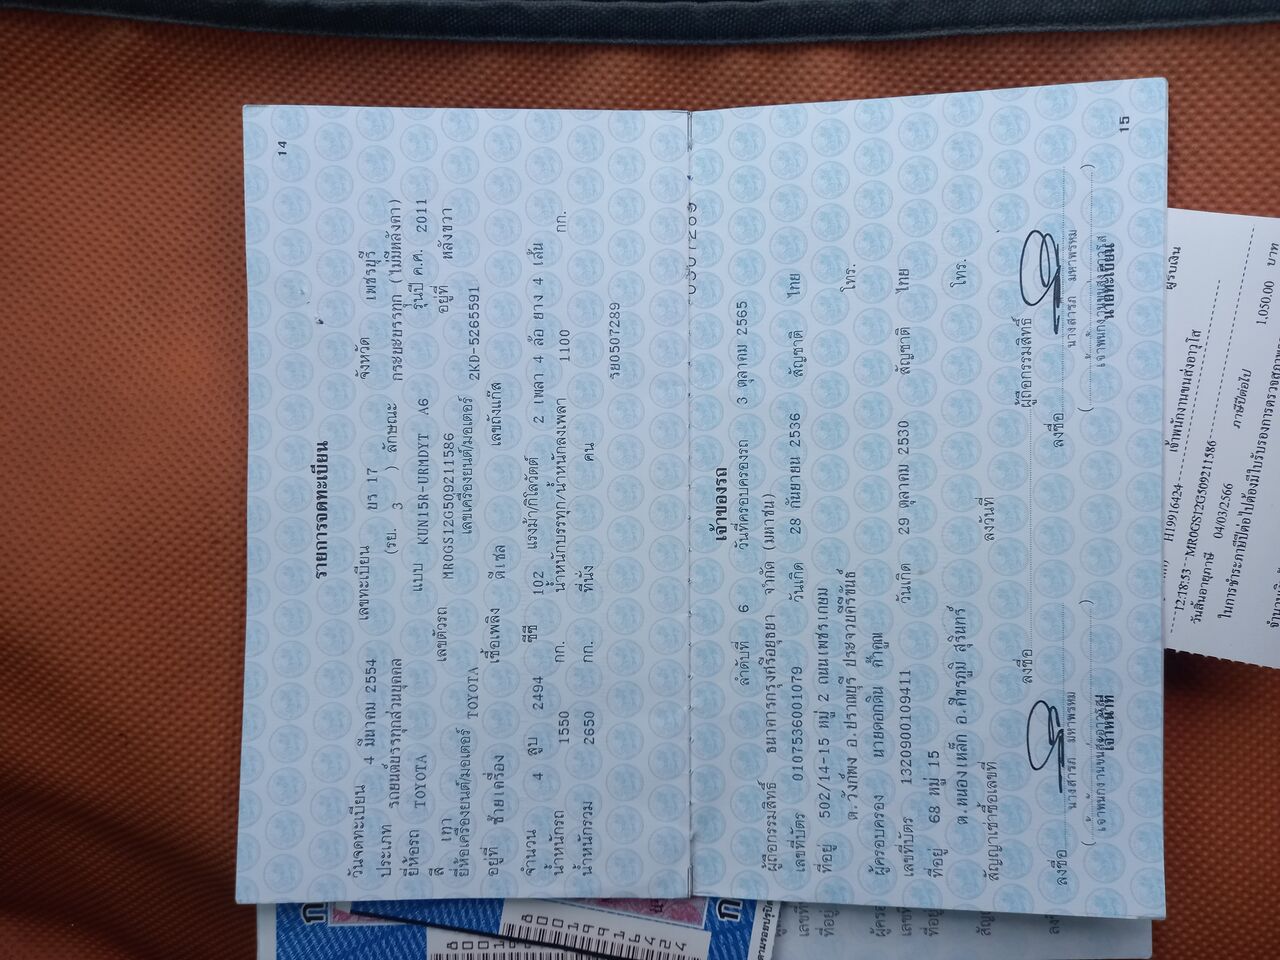 14
รายการจดทะเบียน
วันจดทะเบียน 4 มีนาคม 2554 เลขทะเบียน ยร 17 จังหวัด เพชรบุรี
ประเภท รถยนต์บรรทุกส่วนบุคคล (รย. 3 ) ลักษณะ กระบะบรรทุก (ไม่มีหลังคา)
ยี่ห้อรถ TOYOTA แบบ KUN15R-URMDYT A6 รุ่นปี ค.ศ. 2011
สี เทา เลขตัวรถ MR0GS12G509211586 อยู่ที่ หลังขวา
ยี่ห้อเครื่องยนต์/มอเตอร์ TOYOTA เลขเครื่องยนต์/มอเตอร์ 2KD-5265591
อยู่ที่ ซ้ายเครื่อง เชื้อเพลิง ดีเซล เลขถังแก๊ส
จำนวน 4 สูบ 2494 ซีซี 102 แรงม้า/กิโลวัตต์ 2 เพลา 4 ล้อ ยาง 4 เส้น
น้ำหนักรถ 1550 กก. น้ำหนักบรรทุก/น้ำหนักลงเพลา 1100 กก.
น้ำหนักรวม 2650 กก. ที่นั่ง คน
รย0507289
15
เจ้าของรถ
ลำดับที่ 6 วันที่ครอบครองรถ 3 ตุลาคม 2565
ผู้ถือกรรมสิทธิ์ ธนาคารกรุงศรีอยุธยา จำกัด (มหาชน)
เลขที่บัตร 0107536001079 วันเกิด 28 กันยายน 2536 สัญชาติ ไทย
ที่อยู่ 502/14-15 หมู่ 2 ถนนเพชรเกษม
ต.วังก์พง อ.ปราณบุรี ประจวบคีรีขันธ์ โทร.
ผู้ครอบครอง นายดอกดิน ค้ำคูณ
เลขที่บัตร 1320900109411 วันเกิด 29 ตุลาคม 2530 สัญชาติ ไทย
ที่อยู่ 68 หมู่ 15
ต.หนองเหล็ก อ.ศีขรภูมิ สุรินทร์ โทร.
สัญญาเช่าซื้อเลขที่ ลงวันที่
ลงชื่อ ผู้ถือกรรมสิทธิ์
ลงชื่อ ลงชื่อ
นางสารภ มหาพรหม นางสารภ มหาพรหม
เจ้าหน้าที่ นายทะเบียน
H19916424 เจ้าพนักงานขนส่งอาวุโส ผู้รับเงิน
12:18:53--MR0GS12G509211586
วันสิ้นอายุภาษี 04/03/2566 ภาษีปีต่อไป 1,050.00 บาท